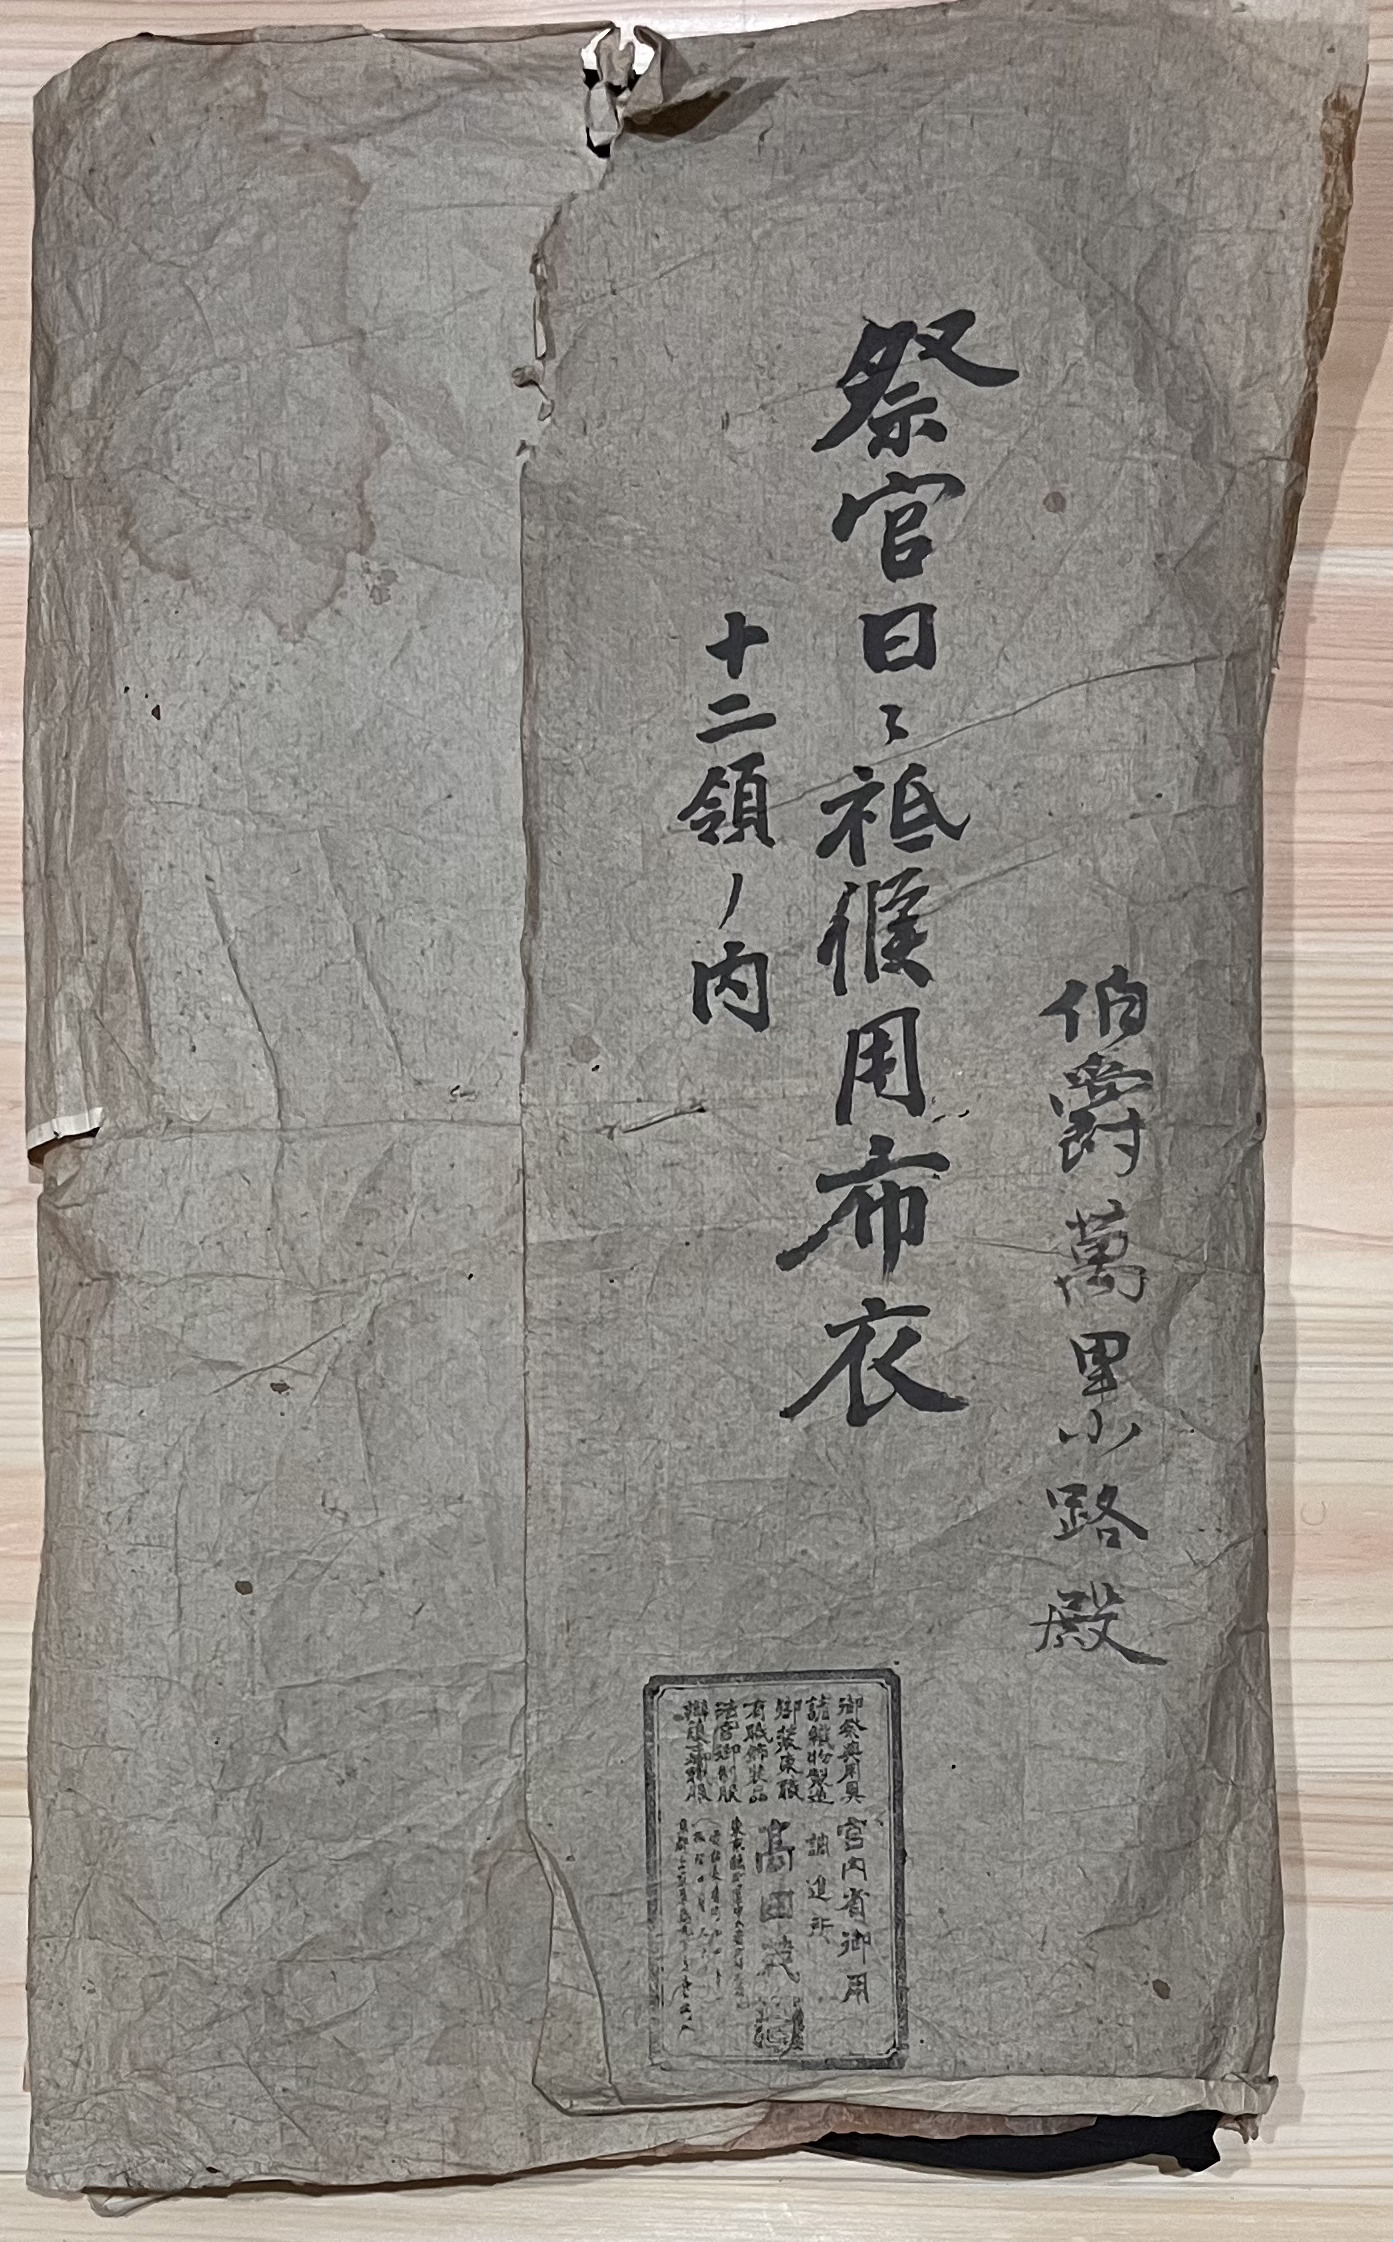 伯爵萬里小路殿
祭官日々祗候用布衣
十二領ノ内
御祭典用具
諸織物製造
御装束職
有職飾装品
法官御制服
辯護士御職服
宮内省御用
調進所
高田茂